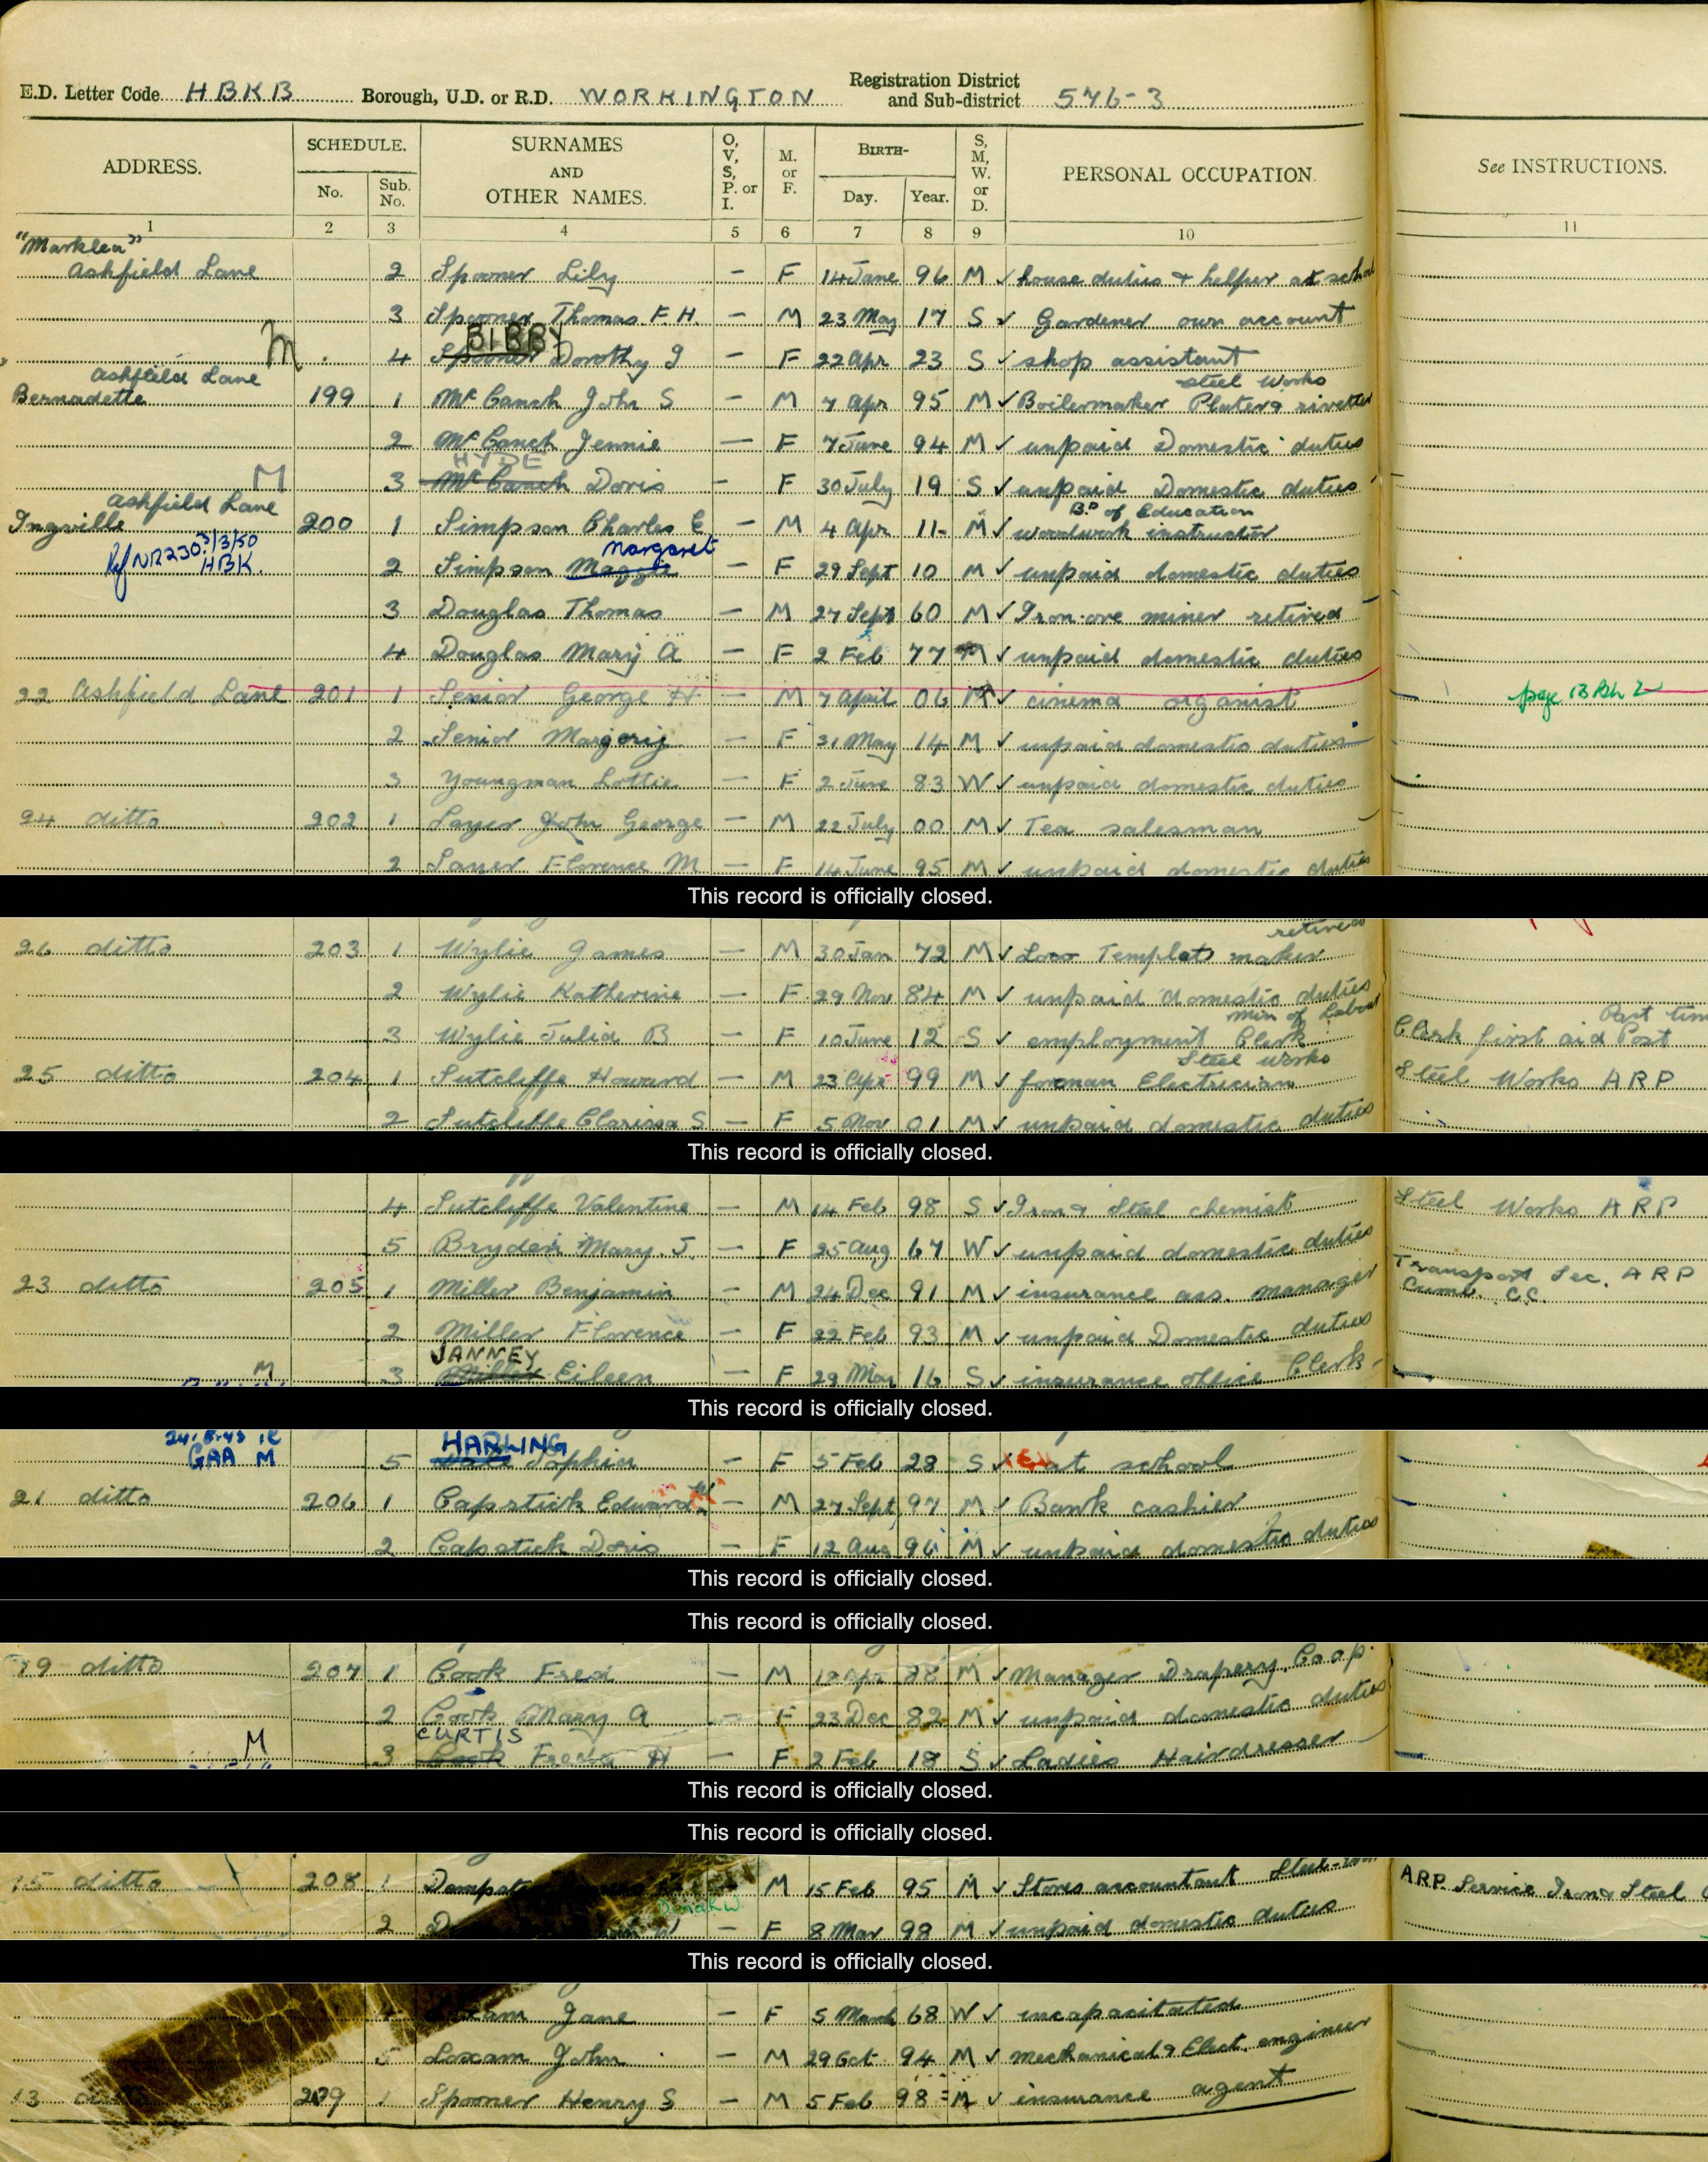 E.D. Letter Code HBKB Borough, U.D. or R.D. WORKINGTON Registration District and Sub-district 576-3
ADDRESS. SCHEDULE. No. Sub. No. SURNAMES AND OTHER NAMES. O, V, S, P. or I. M. or F. BIRTH- Day. Year. S, M, W. or D. PERSONAL OCCUPATION. See INSTRUCTIONS.
1 2 3 4 5 6 7 8 9 10 11
"Marklea"
Ashfield Lane 2 Spooner Lily — F 14 June 96 M ✓ house duties & helper at school
3 Spooner Thomas F. H. — M 23 May 17 S ✓ Gardener own account
BIBBY
M. 4 Spooner Dorothy J — F 22 Apr 23 S ✓ shop assistant
Ashfield Lane steel works
Bernadette 199 1 McCanch John S — M 7 Apr 95 M ✓ Boilermaker Plater & rivetter
2 McCanch Jennie — F 7 June 94 M ✓ unpaid Domestic duties
HYDE
M 3 McCanch Doris — F 30 July 19 S ✓ unpaid Domestic duties
Ashfield Lane Bd of Education
Ingville 200 1 Simpson Charles E — M 4 Apr 11 M ✓ woodwork instructor
Margaret
NR230 3/3/50 HBK. 2 Simpson Maggie — F 29 Sept 10 M ✓ unpaid domestic duties
3 Douglas Thomas — M 27 Sept 60 M ✓ Iron-ore miner retired
4 Douglas Mary A — F 2 Feb 77 M ✓ unpaid domestic duties
22 Ashfield Lane 201 1 Senior George H — M 7 April 06 M ✓ cinema organist page 13
2 Senior Marjorie — F 31 May 14 M ✓ unpaid domestic duties
3 Youngman Lottie — F 2 June 83 W ✓ unpaid domestic duties
24 ditto 202 1 Layer John George — M 22 July 00 M ✓ Tea salesman
2 Layer Florence M — F 14 June 95 M ✓ unpaid domestic duties
This record is officially closed.
retired
26 ditto 203 1 Wylie James — M 30 Jan 72 M ✓ Loco Template maker
2 Wylie Katherine — F 29 Nov 84 M ✓ unpaid domestic duties
Min of Labour Part time
3 Wylie Julia B — F 10 June 12 S ✓ employment Clerk Clerk first aid Post
Steel works
25 ditto 204 1 Sutcliffe Howard — M 23 Apr 99 M ✓ forman Electrician Steel Works ARP
2 Sutcliffe Clarissa S — F 5 Nov 01 M ✓ unpaid domestic duties
This record is officially closed.
4 Sutcliffe Valentine — M 14 Feb 98 S ✓ Iron & Steel chemist Steel Works ARP
5 Bryden Mary. J. — F 25 Aug 67 W ✓ unpaid domestic duties
23 ditto 205 1 Miller Benjamin — M 24 Dec 91 M ✓ insurance ass. manager Transport Sec. ARP Cumb. C.C.
2 Miller Florence — F 22 Feb 93 M ✓ unpaid Domestic duties
JANNEY
M 3 Miller Eileen — F 29 May 16 S ✓ insurance office Clerk
This record is officially closed.
HARLING
GAA M 5 Sophia — F 5 Feb 28 S at school
21 ditto 206 1 Capstick Edward W — M 27 Sept 97 M ✓ Bank cashier
2 Capstick Doris — F 12 Aug 96 M ✓ unpaid domestic duties
This record is officially closed.
This record is officially closed.
19 ditto 207 1 Cook Fred — M 88 M ✓ Manager Drapery. Coop.
2 Cook Mary A — F 23 Dec 82 M ✓ unpaid domestic duties
CURTIS
M 3 Cook Freda H — F 2 Feb 18 S ✓ Ladies Hairdresser
This record is officially closed.
This record is officially closed.
15 ditto 208 1 M 15 Feb 95 M ✓ Stores accountant Steel ARP Service Iron & Steel
2 — F 8 Mar 99 M ✓ unpaid domestic duties
This record is officially closed.
4 Jane — F 5 March 68 W ✓ incapacitated
5 Loxam John — M 29 Oct 94 M ✓ mechanical & Elect. engineer
13 ditto 209 1 Spooner Henry S — M 5 Feb 98 M ✓ insurance agent